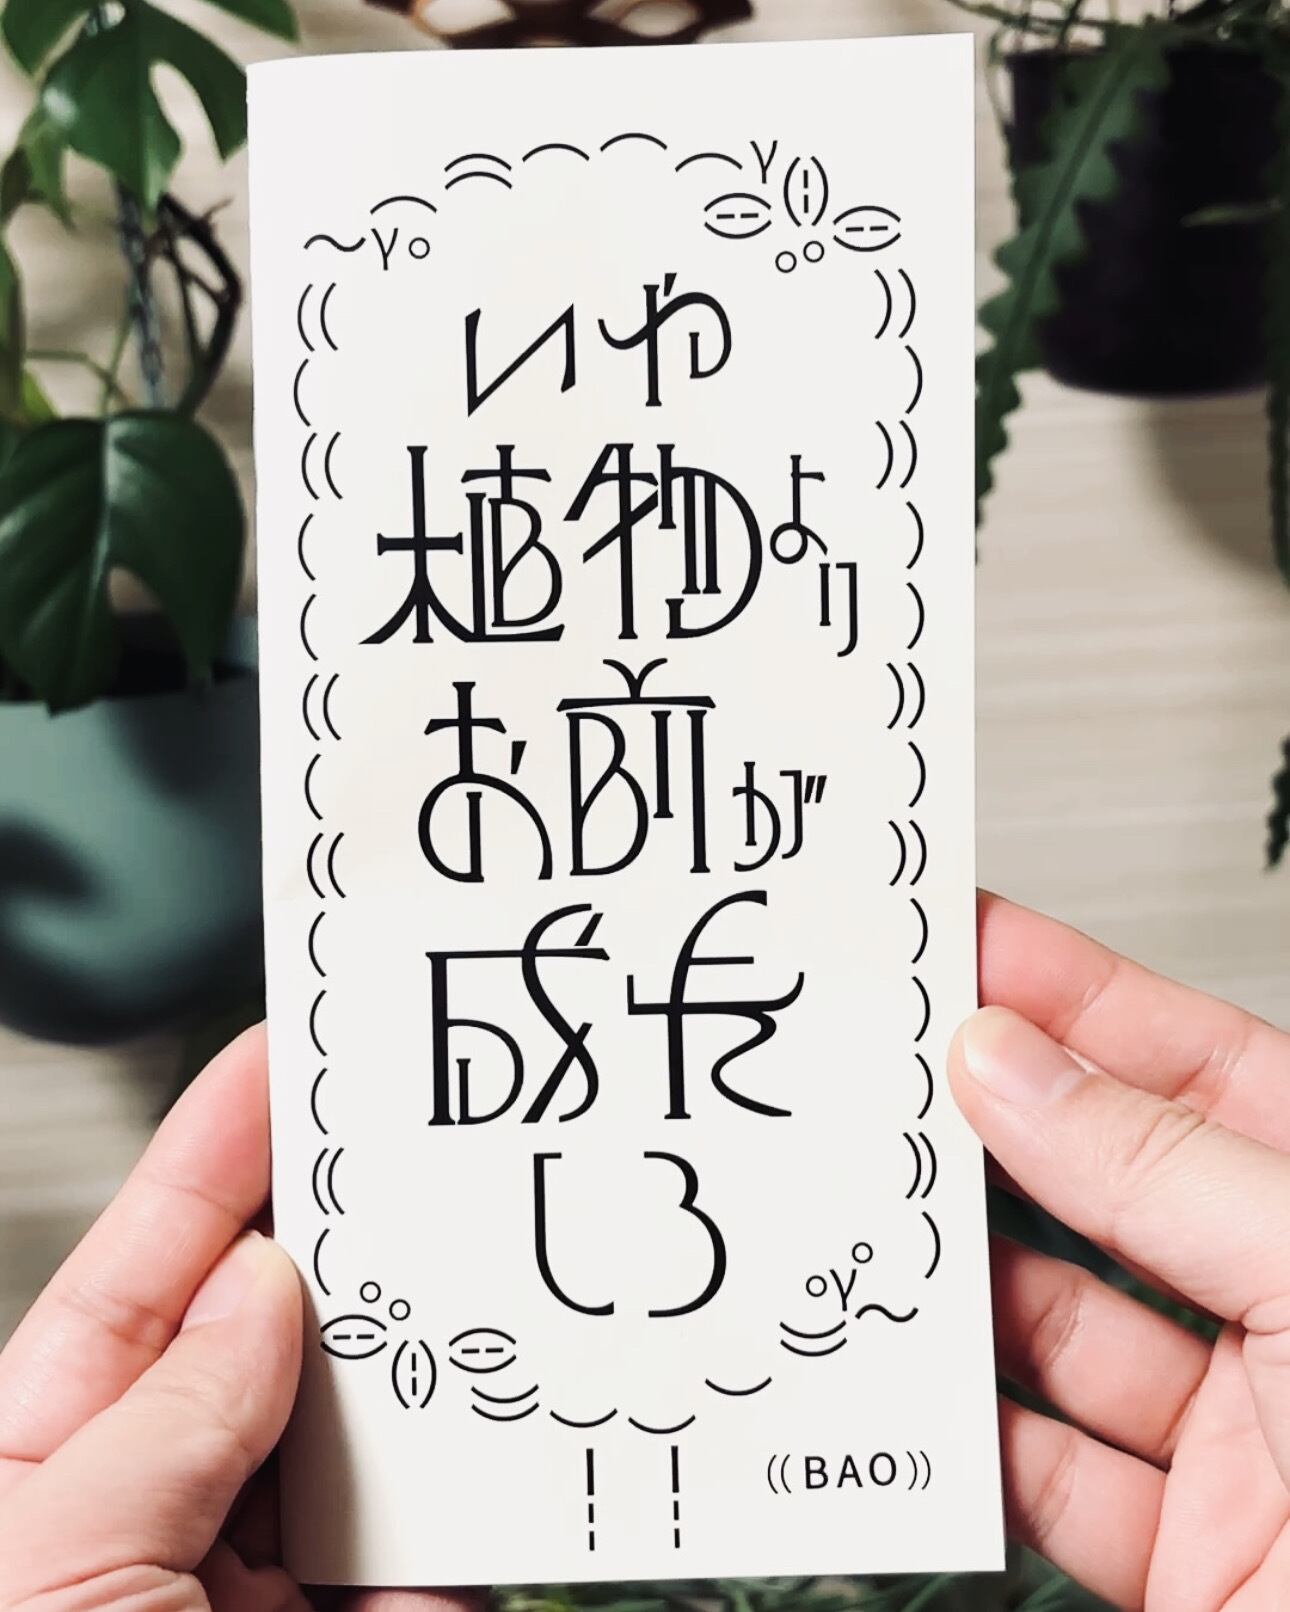 いや
植物より
お前が
成長
しろ
((BAO))